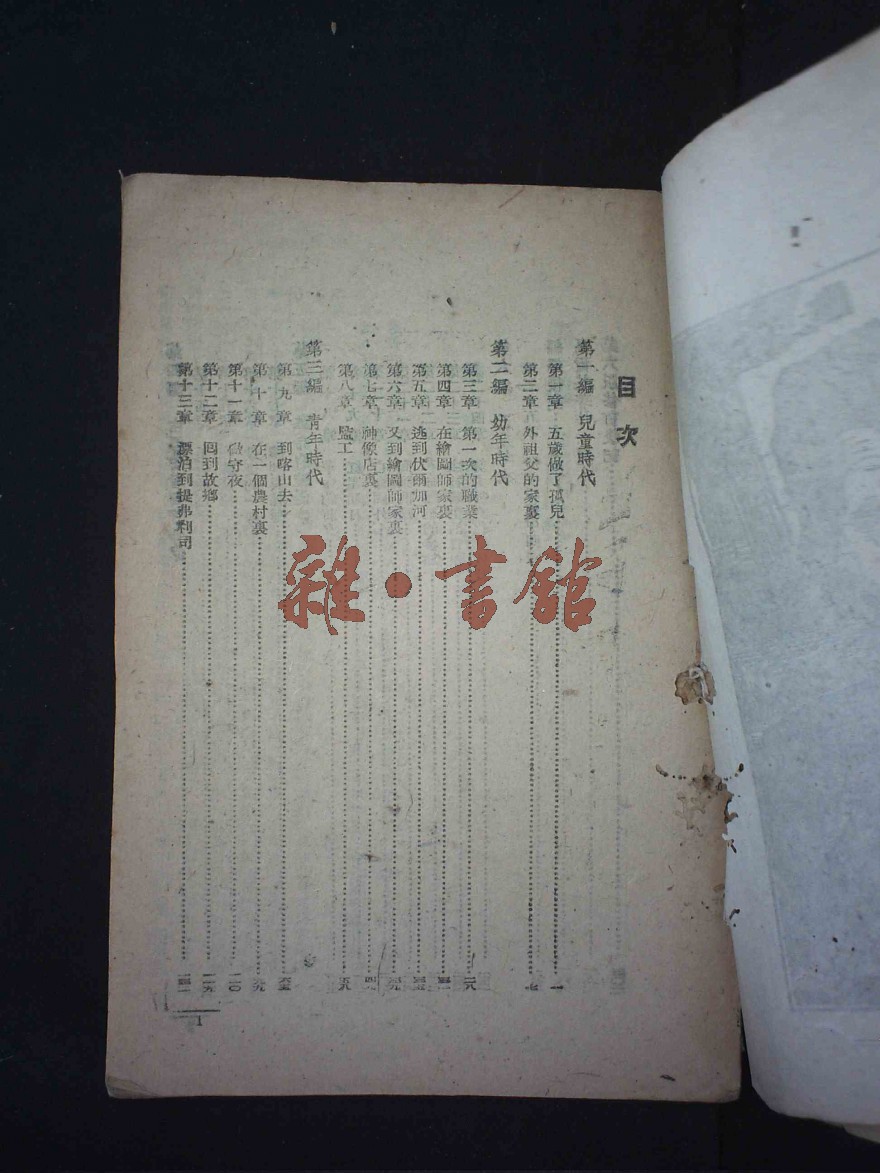 目次
第一編 兒童時代
第一章 五歲做了孤兒……一
第二章 外祖父的家裏……七
第二編 幼年時代
第三章 第一次的職業……二八
第四章 在繪圖師家裏
第五章 逃到伏爾加河
第六章 又到繪圖師家裏
第七章 神像店裏
第八章 監工……五八
第三編 青年時代
第九章 到喀山去……六五
第十章 在一個農村裏……六九
第十一章 做守夜
第十二章 回到故鄉
第十三章 漂泊到提弗利司
1
雜·書館